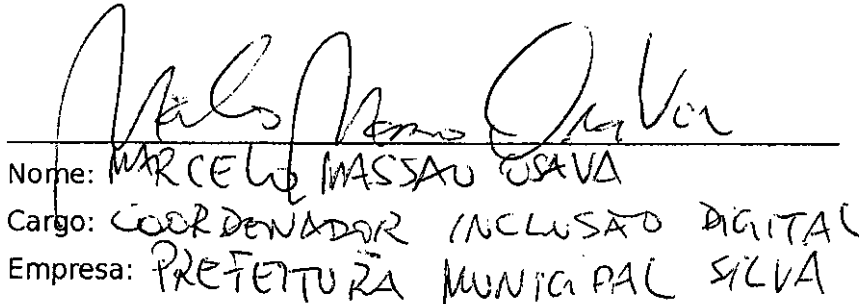 Marcelo Massao Osava
Nome: MARCELO MASSAO OSAVA
Cargo: COORDENADOR INCLUSÃO DIGITAL
Empresa: PREFEITURA MUNICIPAL SILVA